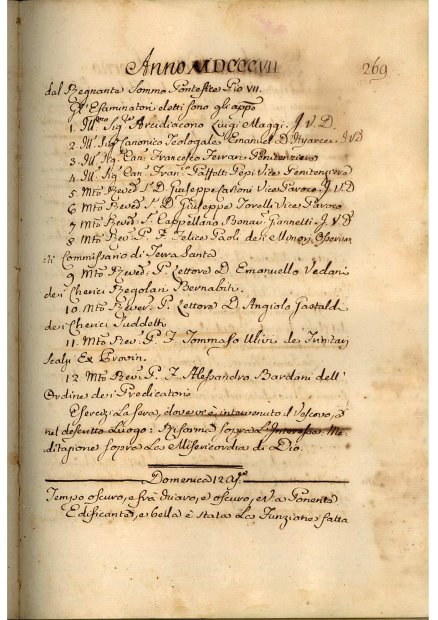 Anno MDCCCVII
269
dal Regnante Sommo Pontefice Pio VII.
Gl' Esaminatori eletti sono gli appo
1. Ill. Sig. Arcidiacono Luigi Maggi. J. V. D.
2. Ill. Sig. Canonico Teologale Emanuel D. J V D
3. Ill. Sig. Can. Francesco Ferrari Penitenziere
4. Ill. Sig. Can. Fran. Pepi Vice Penitenziere
5. Mto Revd. Sr. D. Giuseppe Vice Parroco. J. V D
6. Mto Revd. Sr. D. Giuseppe Torelli Vice Parroco
7. Mto Revd. Sr. Cappellano Bonav. Giannetti. J. V D
8. Mto Rev. P. F. Felice Paoli de i Minori Osservan
ti Commissario di Terra Santa
9. Mto Rever. P. Lettore D. Emanuello Vedani
de i Cherici Regolari Bernabiti.
10. Mto Rever. P. Lettore D. Angiolo Gastaldi
de i Cherici Suddetti
11. Mto Rev. P. F. Tommaso Ulivi de Trinitarj
Scalzi Ex Provin.
12. Mto Rev. P. F. Alessandro Bardani dell'
Ordine de i Predicatori
Esercizi La sera, dove vè intervenuto il Vescovo,
nel descritto Luogo: Riforma sopra L' Me-
ditazione sopra La Misericordia di Dio.
Domenica 12
Tempo oscuro, e frà di varo, e oscuro, e Va Ponente
Edificante, e bella è stata La Funzione fatta